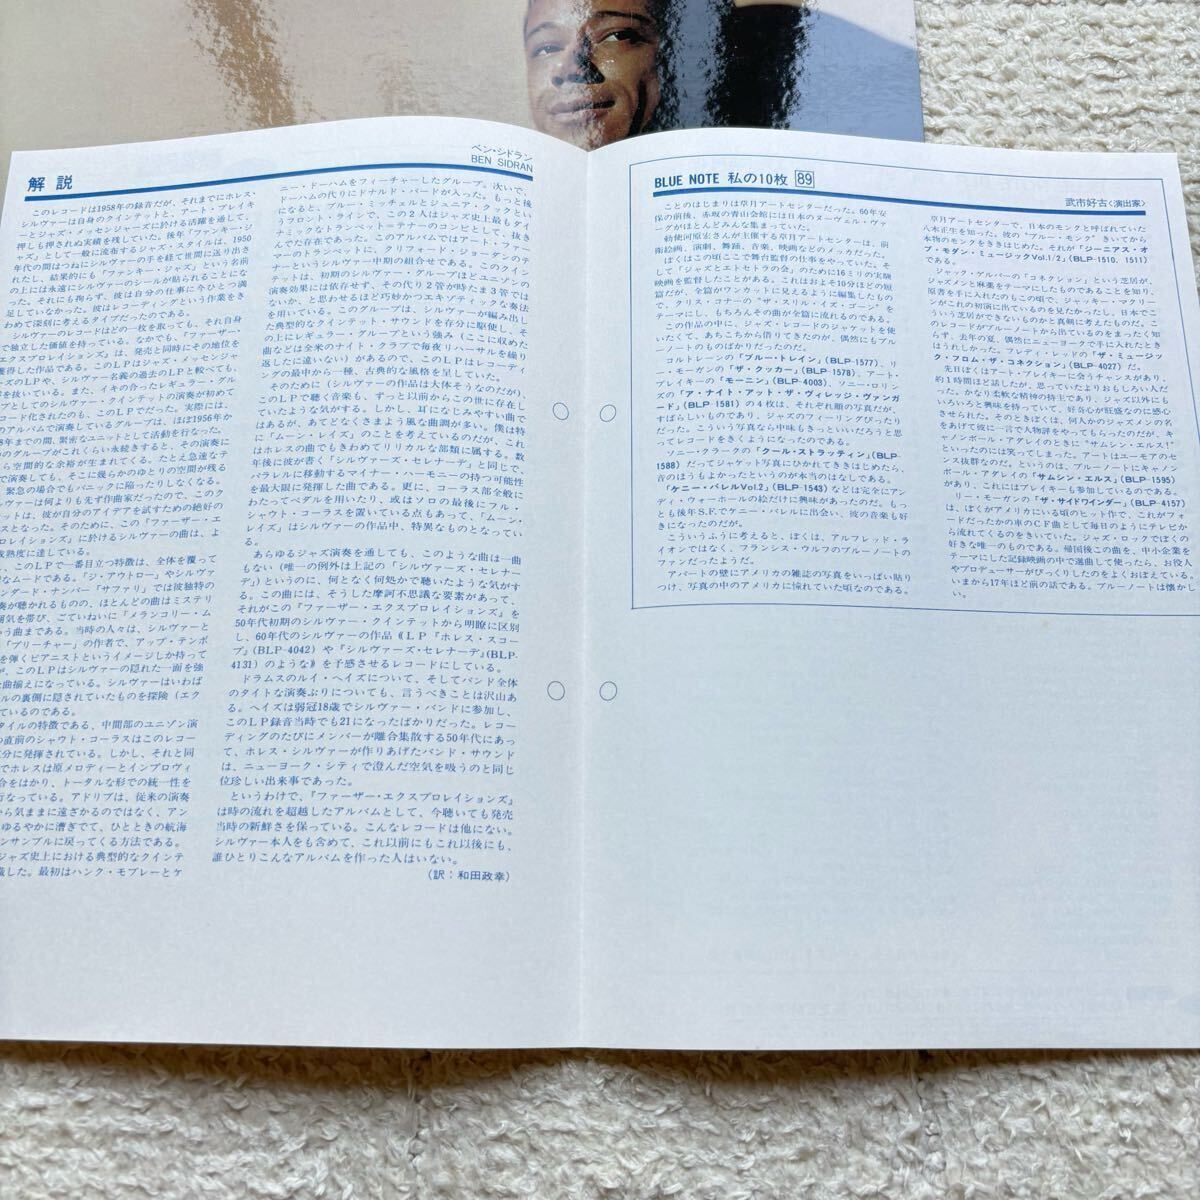 解説
ベン・シドラン
BEN SIDRAN
このレコードは1958年の録音だが、それまでにホレス・
シルヴァーは自身のクインテットと、アート・ブレイキ
ーとジャズ・メッセンジャーズに於ける活躍を通して、
押しも押されぬ実績を残していた。後年『ファンキー・ジ
ャズ』として一般に流布するジャズ・スタイルは、1950
年代の間はつねにシルヴァーの手を経て世間に送り出さ
れたし、結果的にも『ファンキー・ジャズ』という名前
の上には永遠にシルヴァーのシールが貼られることにな
った。それにも拘らず、彼は自分の仕事に今ひとつ満
足していなかった。彼はレコーディングという作業をき
わめて深刻に考えるタイプだったのである。
シルヴァーのレコードはどの一枚を取っても、それ自身
で独立した価値を持っている。なかでも、『ファーザー・
エクスプロレイションズ』は、発売と同時にその地位を
獲得した作品である。このLPはジャズ・メッセンジャ
ーズのLPや、シルヴァー名義の過去のLPと較べても、
を抜いている。また、イキの合ったレギュラー・グル
ープとしてのシルヴァー・クインテットの演奏が初めて
ード化されたのも、このLPでだった。実際には、
のアルバムで演奏しているグループは、ほぼ1956年か
8年までの間、緊密なユニットとして活動を行なった。
のグループがこれくらい永続きすると、その演奏に
ら空間的な余裕が生まれてくる。たとえ急速なテ
で演奏しても、そこに幾らかのゆとりの空間が残る
、緊急の場合でもパニックに陥ったりしなくなる。
ヴァーは何よりも先ず作曲家だったので、このク
ットは、彼が自分のアイデアを試すための絶好の
スとなった。そのために、この『ファーザー・エ
ロレイションズ』に於けるシルヴァーの曲は、よ
成熟度に達している。
、このLPで一番目立つ特徴は、全体を覆って
なムードである。「ジ・アウトロー」やシルヴァ
ンダード・ナンバー「サファリ」では彼独特の
奏が聴かれるものの、ほとんどの曲はミステリ
囲気を帯び、ごていねいに「メランコリー・ム
いう曲まである。当時の人々は、シルヴァーと
「プリーチャー」の作者で、アップ・テンポ
を弾くピアニストというイメージしか持って
が、このLPはシルヴァーの隠れた一面を強
な曲揃えになっている。シルヴァーはいわば
ルの裏側に隠されていたものを探険（エク
ているのである。
タイルの特徴である、中間部のユニゾン演
の直前のシャウト・コーラスはこのレコー
充分に発揮されている。しかし、それと同
でホレスは原メロディーとインプロヴィ
合をはかり、トータルな形での統一性を
行なっている。アドリブは、従来の演奏
から気ままに遠ざかるのではなく、アン
ゆるやかに漕ぎでて、ひとときの航海
ンサンブルに戻ってくる方法である。
ジャズ史上における典型的なクインテ
識した。最初はハンク・モブレーとケ
ニー・ドーハムをフィーチャーしたグループ。次いで、
ドーハムの代りにドナルド・バードが入った。もっと後
になると、ブルー・ミッチェルとジュニア・クックとい
うフロント・ラインで、この2人はジャズ史上最もダイ
ナミックなトランペット=テナーのコンビとして、抜き
んでた存在であった。このアルバムではアート・ファー
マーのトランペットに、クリフォード・ジョーダンのテ
ナーというシルヴァー中期の組合せである。このクイン
テットは、初期のシルヴァー・グループほどユニゾンの
演奏効果には依存せず、その代り2管が時たま3管では
ないか、と思わせるほど巧妙かつエキゾティックな奏法
を用いている。このグループは、シルヴァーが編み出し
た典型的なクインテット・サウンドを存分に駆使し、そ
の上にレギュラー・グループという強み（ここに収めた
曲などは全米のナイト・クラブで毎夜リハーサルを繰り
返したに違いない）があるので、このLPはレコーディ
ィングの最中から一種、古典的な風格を呈していた。
そのために（シルヴァーの作品は大体そうなのだが）、
このLPで聴く音楽も、ずっと以前からこの世に存在し
ていたような気がする。しかし、耳になじみやすい曲で
はあるが、あてどなくさまよう風な曲調が多い。僕は特
に「ムーン・レイズ」のことを考えているのだが、これ
はホレスの曲でもきわめてリリカルな部類に属する。数
年後に彼が書く「シルヴァーズ・セレナーデ」と同じで、
パラレルに移動するマイナー・ハーモニーの持つ可能性
を最大限に発揮した曲である。更に、コーラス部全般に
わたってペダルを用いたり、或はソロの最後にフル・
シャウト・コーラスを置いている点もあって、「ムーン・
レイズ」はシルヴァーの作品中、特異なものとなってい
る。
あらゆるジャズ演奏を通しても、このような曲は一曲
もない（唯一の例外は上記の「シルヴァーズ・セレナー
デ」）というのに、何となく何処かで聴いたような気がす
る。この曲には、そうした摩訶不思議な要素があって、
それがこの『ファーザー・エクスプロレイションズ』を
50年代初期のシルヴァー・クインテットから明瞭に区別
し、60年代のシルヴァーの作品《LP『ホレス・スコー
プ』(BLP-4042)や『シルヴァーズ・セレナーデ』(BLP-
4131)のような》を予感させるレコードにしている。
ドラムスのルイ・ヘイズについて、そしてバンド全体
のタイトな演奏ぶりについても、言うべきことは沢山あ
る。ヘイズは弱冠18歳でシルヴァー・バンドに参加し、
このLP録音当時でも21になったばかりだった。レコー
ディングのたびにメンバーが離合集散する50年代にあっ
て、ホレス・シルヴァーが作りあげたバンド・サウンド
は、ニューヨーク・シティで澄んだ空気を吸うのと同じ
位珍しい出来事であった。
というわけで、『ファーザー・エクスプロレイションズ』
は時の流れを超越したアルバムとして、今聴いても発売
当時の新鮮さを保っている。こんなレコードは他にない。
シルヴァー本人をも含めて、これ以前にもこれ以後にも、
誰ひとりこんなアルバムを作った人はいない。
(訳:和田政幸)
BLUE NOTE 私の10枚 89
武市好古〈演出家〉
ことのはじまりは草月アートセンターだった。60年安
保の前後、赤坂の青山会館には日本のヌーヴェル・ヴァ
ーグがほとんどみな集まっていた。
勅使河原宏さんが主催する草月アートセンターは、前
衛絵画、演劇、舞踊、音楽、映画などのメッカだった。
ぼくはこの頃ここで舞台監督の仕事をやっていた。そ
して「ジャズとエトセトラの会」のために16ミリの実験
映画を監督したことがある。これはおよそ10分ほどの短
篇だが、全篇がワンカットに見えるように編集したもの
で、クリス・コナーの“ザ・スリル・イズ・ゴーン”を
テーマにし、もちろんその曲が全篇に流れるのである。
この作品の中に、ジャズ・レコードのジャケットを使
いたくて、あちこちから借りたのだが、偶然にもブルー
ノートのものばかりだったのだ。
コルトレーンの「ブルー・トレイン」(BLP-1577)、リ
ー・モーガンの「ザ・クッカー」(BLP-1578)、アート・
ブレイキーの「モーニン」(BLP-4003)、ソニー・ロリン
ズの「ア・ナイト・アット・ザ・ヴィレッジ・ヴァンガ
ード」(BLP-1581)の4枚は、それぞれ顔の写真だが、
すばらしいものであり、ジャズのイメージがぴったり
だった。こういう写真なら中味もきっといいだろうと思
ってレコードをきくようになったのである。
ソニー・クラークの「クール・ストラッティン」(BLP-
1588)だってジャケット写真にひかれてききはじめたら、
音のほうもよかったというのが本当のはなしである。
「ケニー・バレルVol.2」(BLP-1543)などは完全にアン
ディ・ウォーホールの絵だけに興味があったのだ。もっ
とも後年S.F.でケニー・バレルに出会い、彼の音楽も好
きになったのだが。
こういうふうに考えると、ぼくは、アルフレッド・ラ
イオンではなく、フランシス・ウルフのブルーノートの
ファンだったようだ。
アパートの壁にアメリカの雑誌の写真をいっぱい貼り
つけ、写真の中のアメリカに憧れていた頃なのである。
草月アートセンターで、日本のモンクと呼ばれていた
八木正生を知った。彼の“ブルー・モンク”きいてから
本物のモンクをききはじめた。それが「ジニアス・オ
ブ・モダン・ミュージックVol.1/2」(BLP-1510、1511)
である。
ジャック・ゲルバーの「コネクション」という芝居が、
ジャズメンと麻薬をテーマにしたものであることを知り、
原書を手に入れたのもこの頃で、ジャッキー・マクリー
ンがこれの初演に出ているのを見たかったし、日本でこ
ういう芝居ができないものかと真剣に考えたものだ。こ
のレコードがブルーノートから出ているのをまったく知
らず、去年の夏、偶然にニューヨークで手に入れたとき
はうれしかった。フレディ・レッドの「ザ・ミュージッ
ク・フロム・ザ・コネクション」(BLP-4027)だ。
先日ぼくはアート・ブレイキーに会うチャンスがあり、
約1時間ほど話したが、思っていたよりおもしろい人だ
った。かなり柔軟な精神の持主であり、ジャズ以外にも
いろいろと興味を持っていて、好奇心が旺盛なのに感心
させられた。そのときぼくは、何人かのジャズメンの名
をあげて彼に一言で人物評をやってもらったのだが、キ
ャノンボール・アダレイのときに“サムシン・エルス!”
といったのには笑ってしまった。アートはユーモアのセ
ンス抜群なのだ。というのは、ブルーノートにキャノン
ボール・アダレイの「サムシン・エルス」(BLP-1595)
があり、これにはブレイキーも参加しているのである。
リー・モーガンの「ザ・サイドワインダー」(BLP-4157)
は、ぼくがアメリカにいる頃のヒット作で、これがフォ
ードだったかの車のCF曲として毎日のようにテレビか
ら流れていたのがなつかしい。ジャズ・ロックでぼくの
好きな唯一のものである。帰国後この曲を、中小企業を
テーマにした記録映画の中で選曲して使ったら、お役人
やプロデューサーがびっくりしたのをよくおぼえている。
いまから17年ほど前の話である。ブルーノートは懐かし
い。